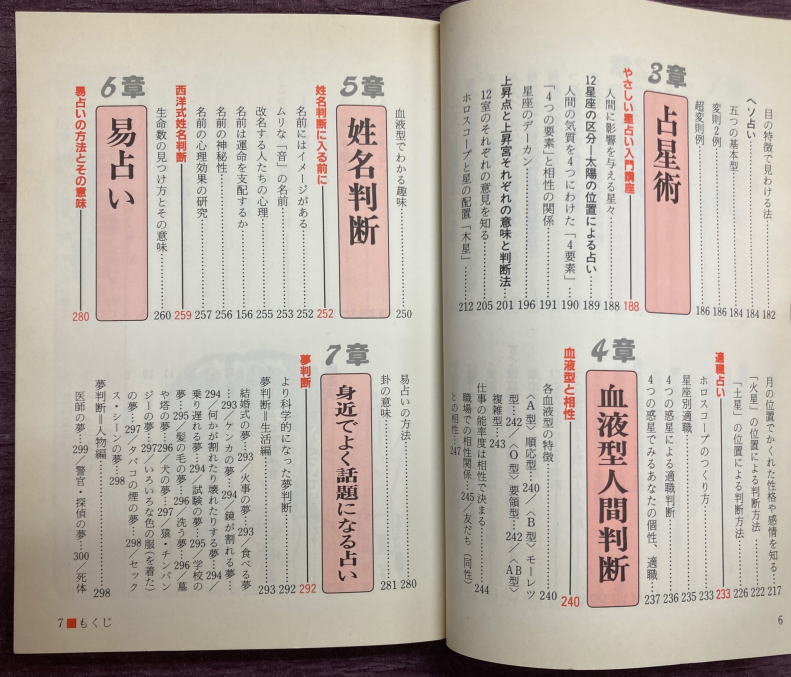 目の特徴で見わける法……182
ヘソ占い
五つの基本型……184
変則2例……184
超変則例……186
186
3章
占星術
やさしい星占い入門講座――188
人間に影響を与える星々……188
12星座の区分―太陽の位置による占い……189
人間の気質を4つにわけた「4要素」……190
「4つの要素」と相性の関係……191
星座のデーカン……196
上昇点と上昇宮それぞれの意味と判断法……201
12室のそれぞれの意見を知る……205
ホロスコープと星の配置「木星」……212
月の位置でかくれた性格や感情を知る……217
「火星」の位置による判断方法……222
「土星」の位置による判断方法……226
適職占い――233
ホロスコープのつくり方……233
星座別適職……235
4つの惑星による適職判断……236
4つの惑星でみるあなたの個性、適職……237
4章
血液型人間判断
血液型と相性――240
各血液型の特徴……240
〈A型〉順応型…240/〈B型〉モーレツ
型…242/〈O型〉要領型…242/〈AB型〉
複雑型…243
仕事の能率度は相性で決まる……244
職場での相性関係…245/友だち(同性)
との相性…247
6
血液型でわかる趣味……250
5章
姓名判断
姓名判断に入る前に――252
名前にはイメージがある……252
ムリな「音」の名前……253
改名する人たちの心理……255
名前は運命を支配するか……156
名前の神秘性……256
名前の心理効果の研究……257
西洋式姓名判断――259
生命数の見つけ方とその意味……260
6章
易占い
易占いの方法とその意味――280
易占いの方法……280
卦の意味……281
7章
身近でよく話題になる占い
夢判断――292
より科学的になった夢判断……292
夢判断=生活編……293
結婚式の夢…293/火事の夢…293/食べる夢
…293/ケンカの夢…294/鏡が割れる夢…
294/何かが割れたり壊れたりする夢…294/
乗り遅れる夢…294/試験の夢…295/学校の
夢…295/髪の毛の夢…296/洗う夢…296/墓
や塔の夢…296/犬の夢…297/猿・チンパン
ジーの夢…297/いろいろな色の服(を着た)
の夢…297/タバコの煙の夢…298/セック
ス・シーンの夢…298
夢判断=人物編……298
医師の夢…299/警官・探偵の夢…300/死体
7■もくじ